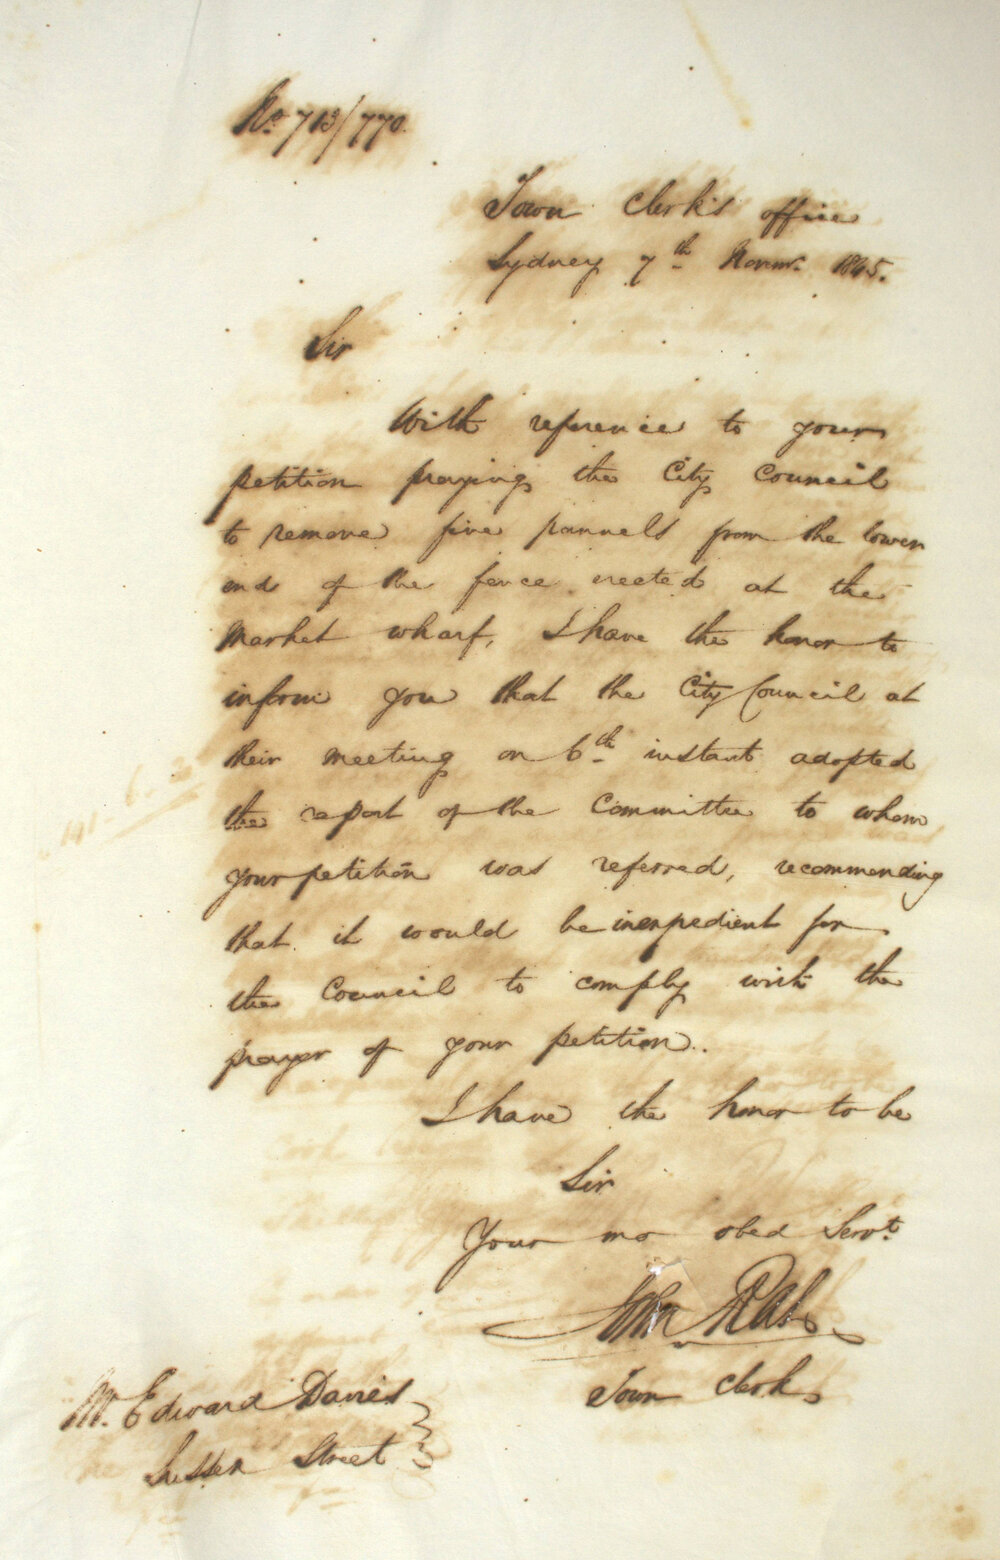 No. 713/770.
Town Clerk's office
Sydney 7th Novemr. 1845.
Sir
With reference to your
petition praying the City Council
to remove five pannels from the lower
end of the fence erected at the
Market wharf, I have the honor to
inform you that the City Council at
their meeting on 6th instant adopted
the report of the Committee to whom
your petition was referred, recommending
that it would be inexpedient for
the Council to comply with the
prayer of your petition.
I have the honor to be
Sir
Your mo obed Servt.
John
Town Clerk
Mr. Edward Davies
Sussex Street